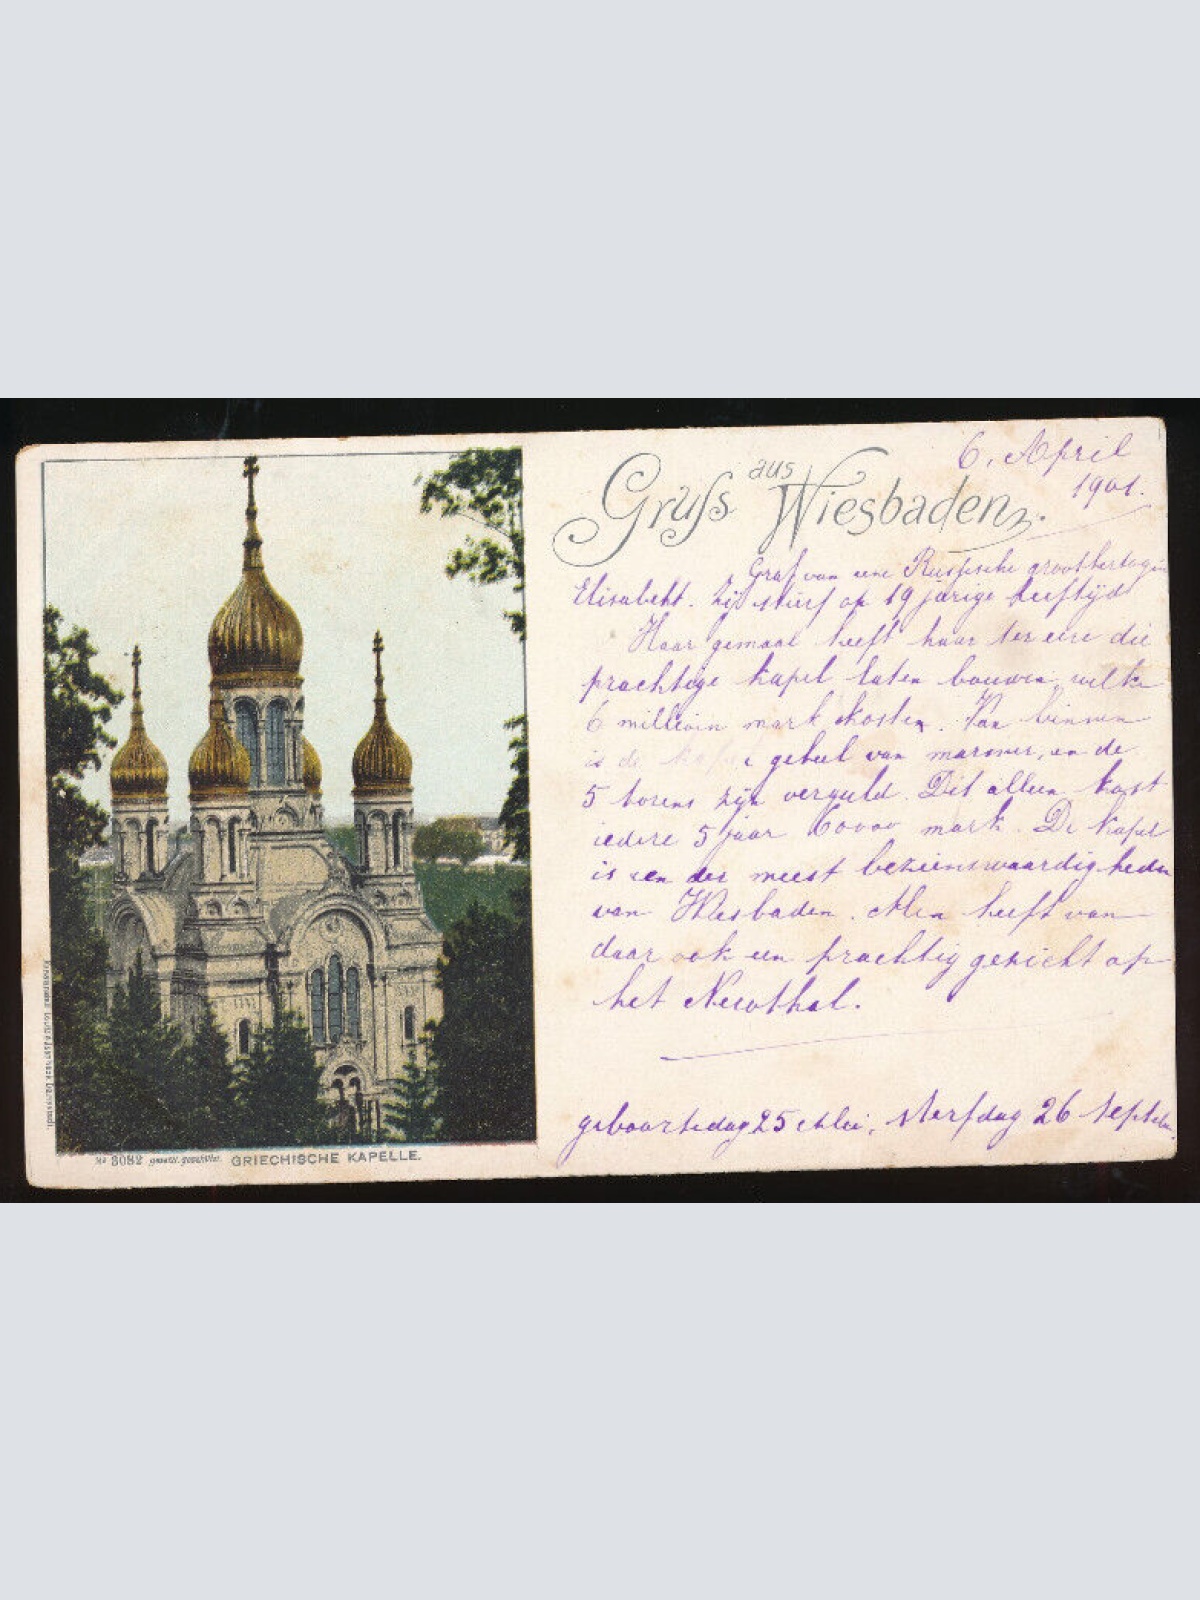 Gruss aus Wiesbaden.
6. April
1901.
Graf van eene Russische groothertogin
Elisabeht. Zij stierf op 19 jarige leeftijd
Haar gemaal heeft haar ter eere die
prachtige kapel laten bouwen, welke
6 millioin mark kosten. Van binnen
is de geheel van marmer, en de
5 torens zijn verguld. Dit alleen kost
iedere 5 jaar 60000 mark. De kapel
is een der meest bezienswaardigheden
van Wiesbaden. Men heeft van
daar ook een prachtig gezicht op
het Nerothal.
geboortedag 25 Mei, sterfdag 26 Septem
No 3082 gesetzl. geschützt. GRIECHISCHE KAPELLE.